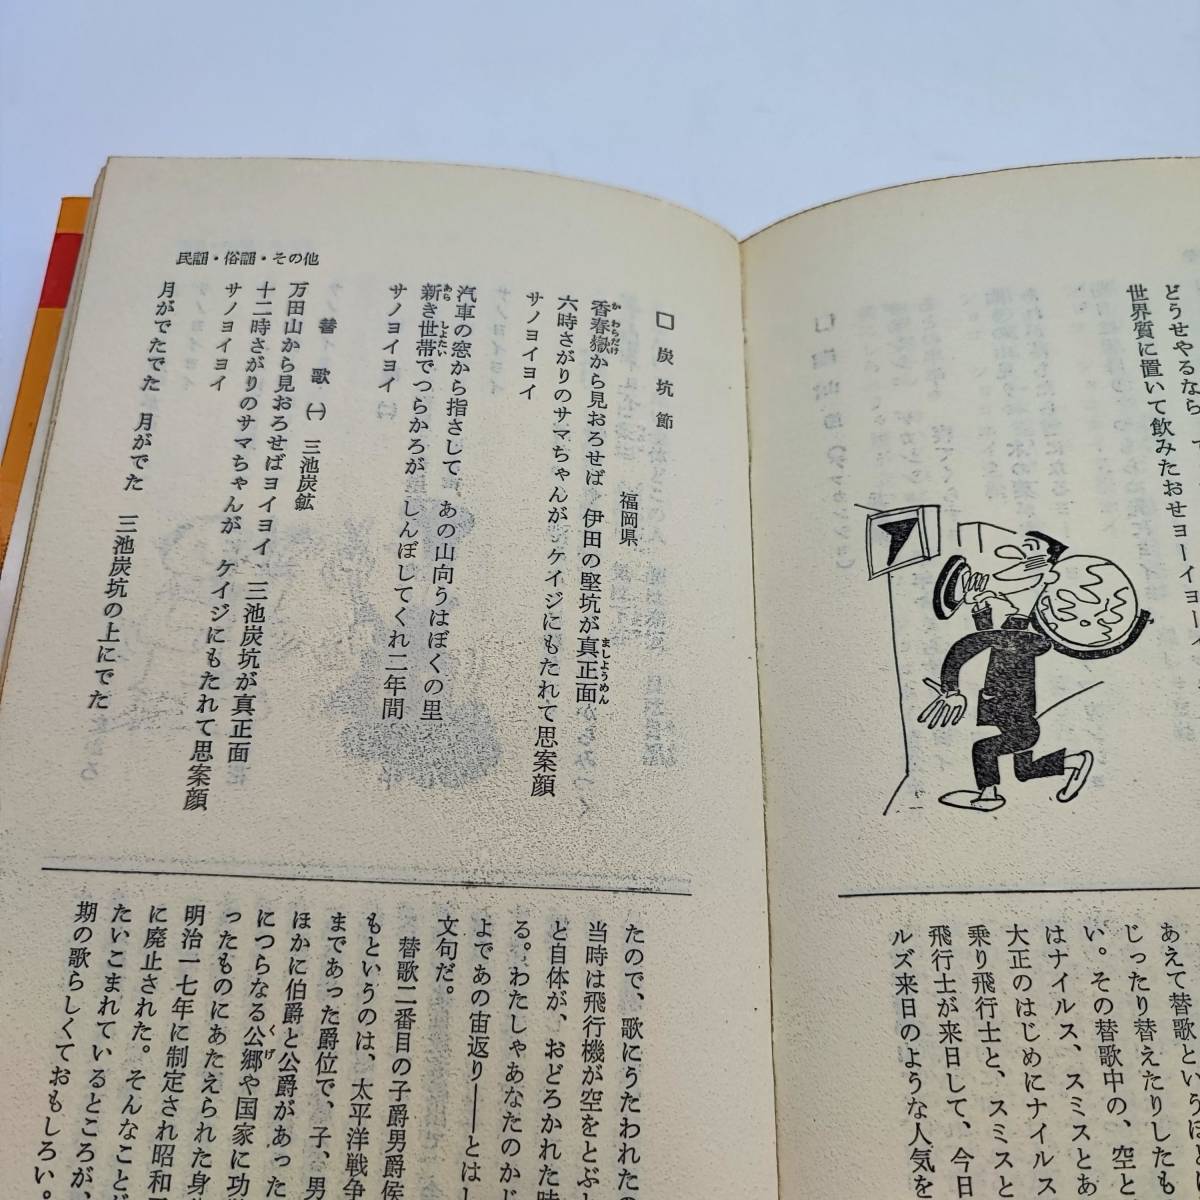 どうせやるなら
世界質に置いて飲みたおせヨーイヨー
あえて替歌というほど
じったり替えたりしたも
い。その替歌中の、空と
はナイルス、スミスとあ
大正のはじめにナイルス
乗り飛行士と、スミスと
飛行士が来日して、今日
ルズ来日のような人気を
民謡・俗謡・その他
□炭坑節
福岡県
香春嶽から見おろせば　伊田の堅坑が真正面
か　わらだけ
ましようめん
六時さがりのサマちゃんが　ケイジにもたれて思案顔
サノヨイヨイ
汽車の窓から指さして　あの山向うはぼくの里
新き世帯でつらかろが　しんぼしてくれ二年間
あら　しよたい
サノヨイヨイ
替　歌　㈠　三池炭鉱
万田山から見おろせばヨイヨイ　三池炭坑が真正面
十二時さがりのサマちゃんが　ケイジにもたれて思案顔
サノヨイヨイ
月がでたでた　月がでた　三池炭坑の上にでた
たので、歌にうたわれたの
当時は飛行機が空をとぶ
と自体が、おどろかれた時
る。わたしゃあなたのか
よであの宙返り――とは
文句だ。
替歌二番目の子爵男爵侯
もというのは、太平洋戦争
まであった爵位で、子、男
ほかに伯爵と公爵があった
につらなる公郷や国家に功
くげ
ったものにあたえられた身
明治一七年に制定され昭和
に廃止された。そんなことど
たいこまれているところが、
期の歌らしくておもしろい。